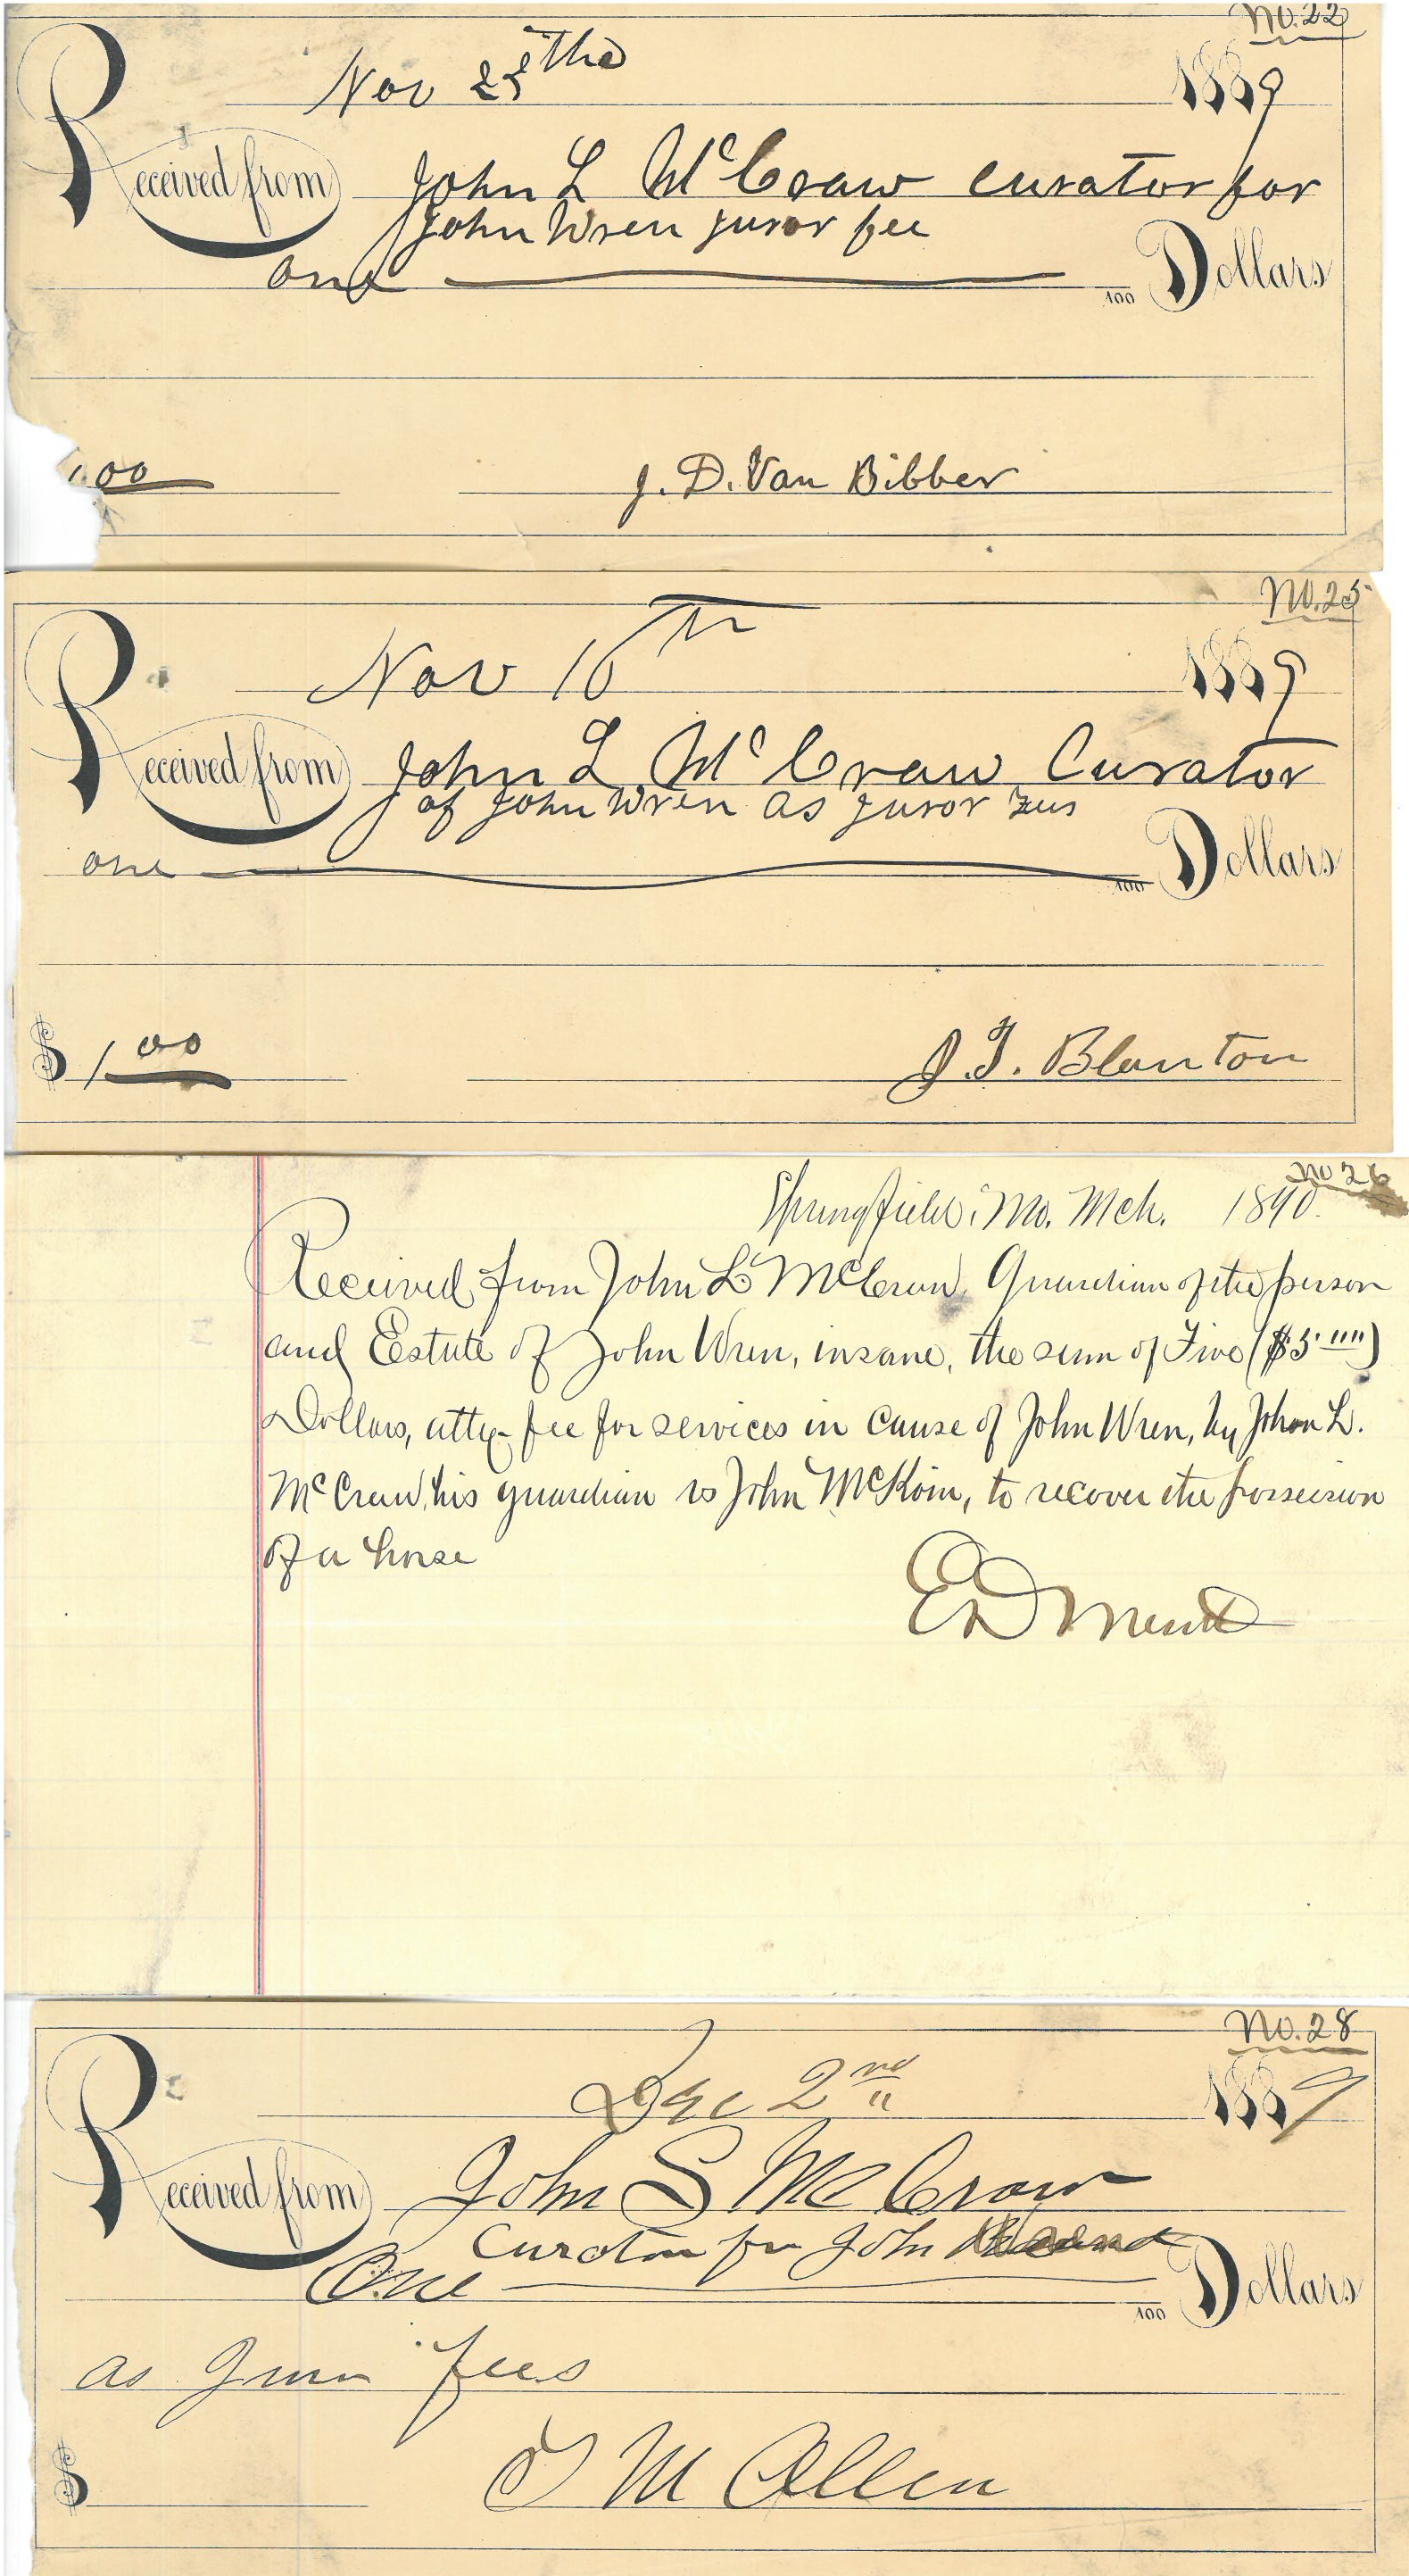 No. 22
Nov 25the 1889
Received from John L McCraw curator for
John Wren juror fee
one /100 Dollars
1.00 J. D. Van Bibber
No. 25
Nov 16th 1889
Received from John L McCraw Curator
of John Wren as juror
one /100 Dollars
$ 1.00 J. T. Blanton
No 26
Springfield, Mo. Mch. 1890.
Received from John L McCraw, Guardian of the person
and Estate of John Wren, insane, the sum of Five ($5"")
Dollars, atty- fee for services in cause of John Wren, by John L.
McCraw, his guardian vs John McKoin, to recover the possession
of a horse
E D Merritt
No. 28
Dec 2nd 1889
Received from John S McCraw
Curator for John
One /100 Dollars
as Juror fees
$ T M Allen